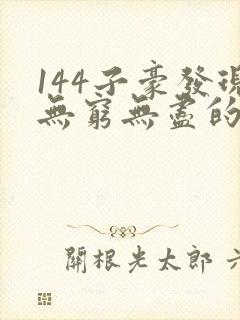 144子豪發現
無窮無盡的
開根光太郎 六